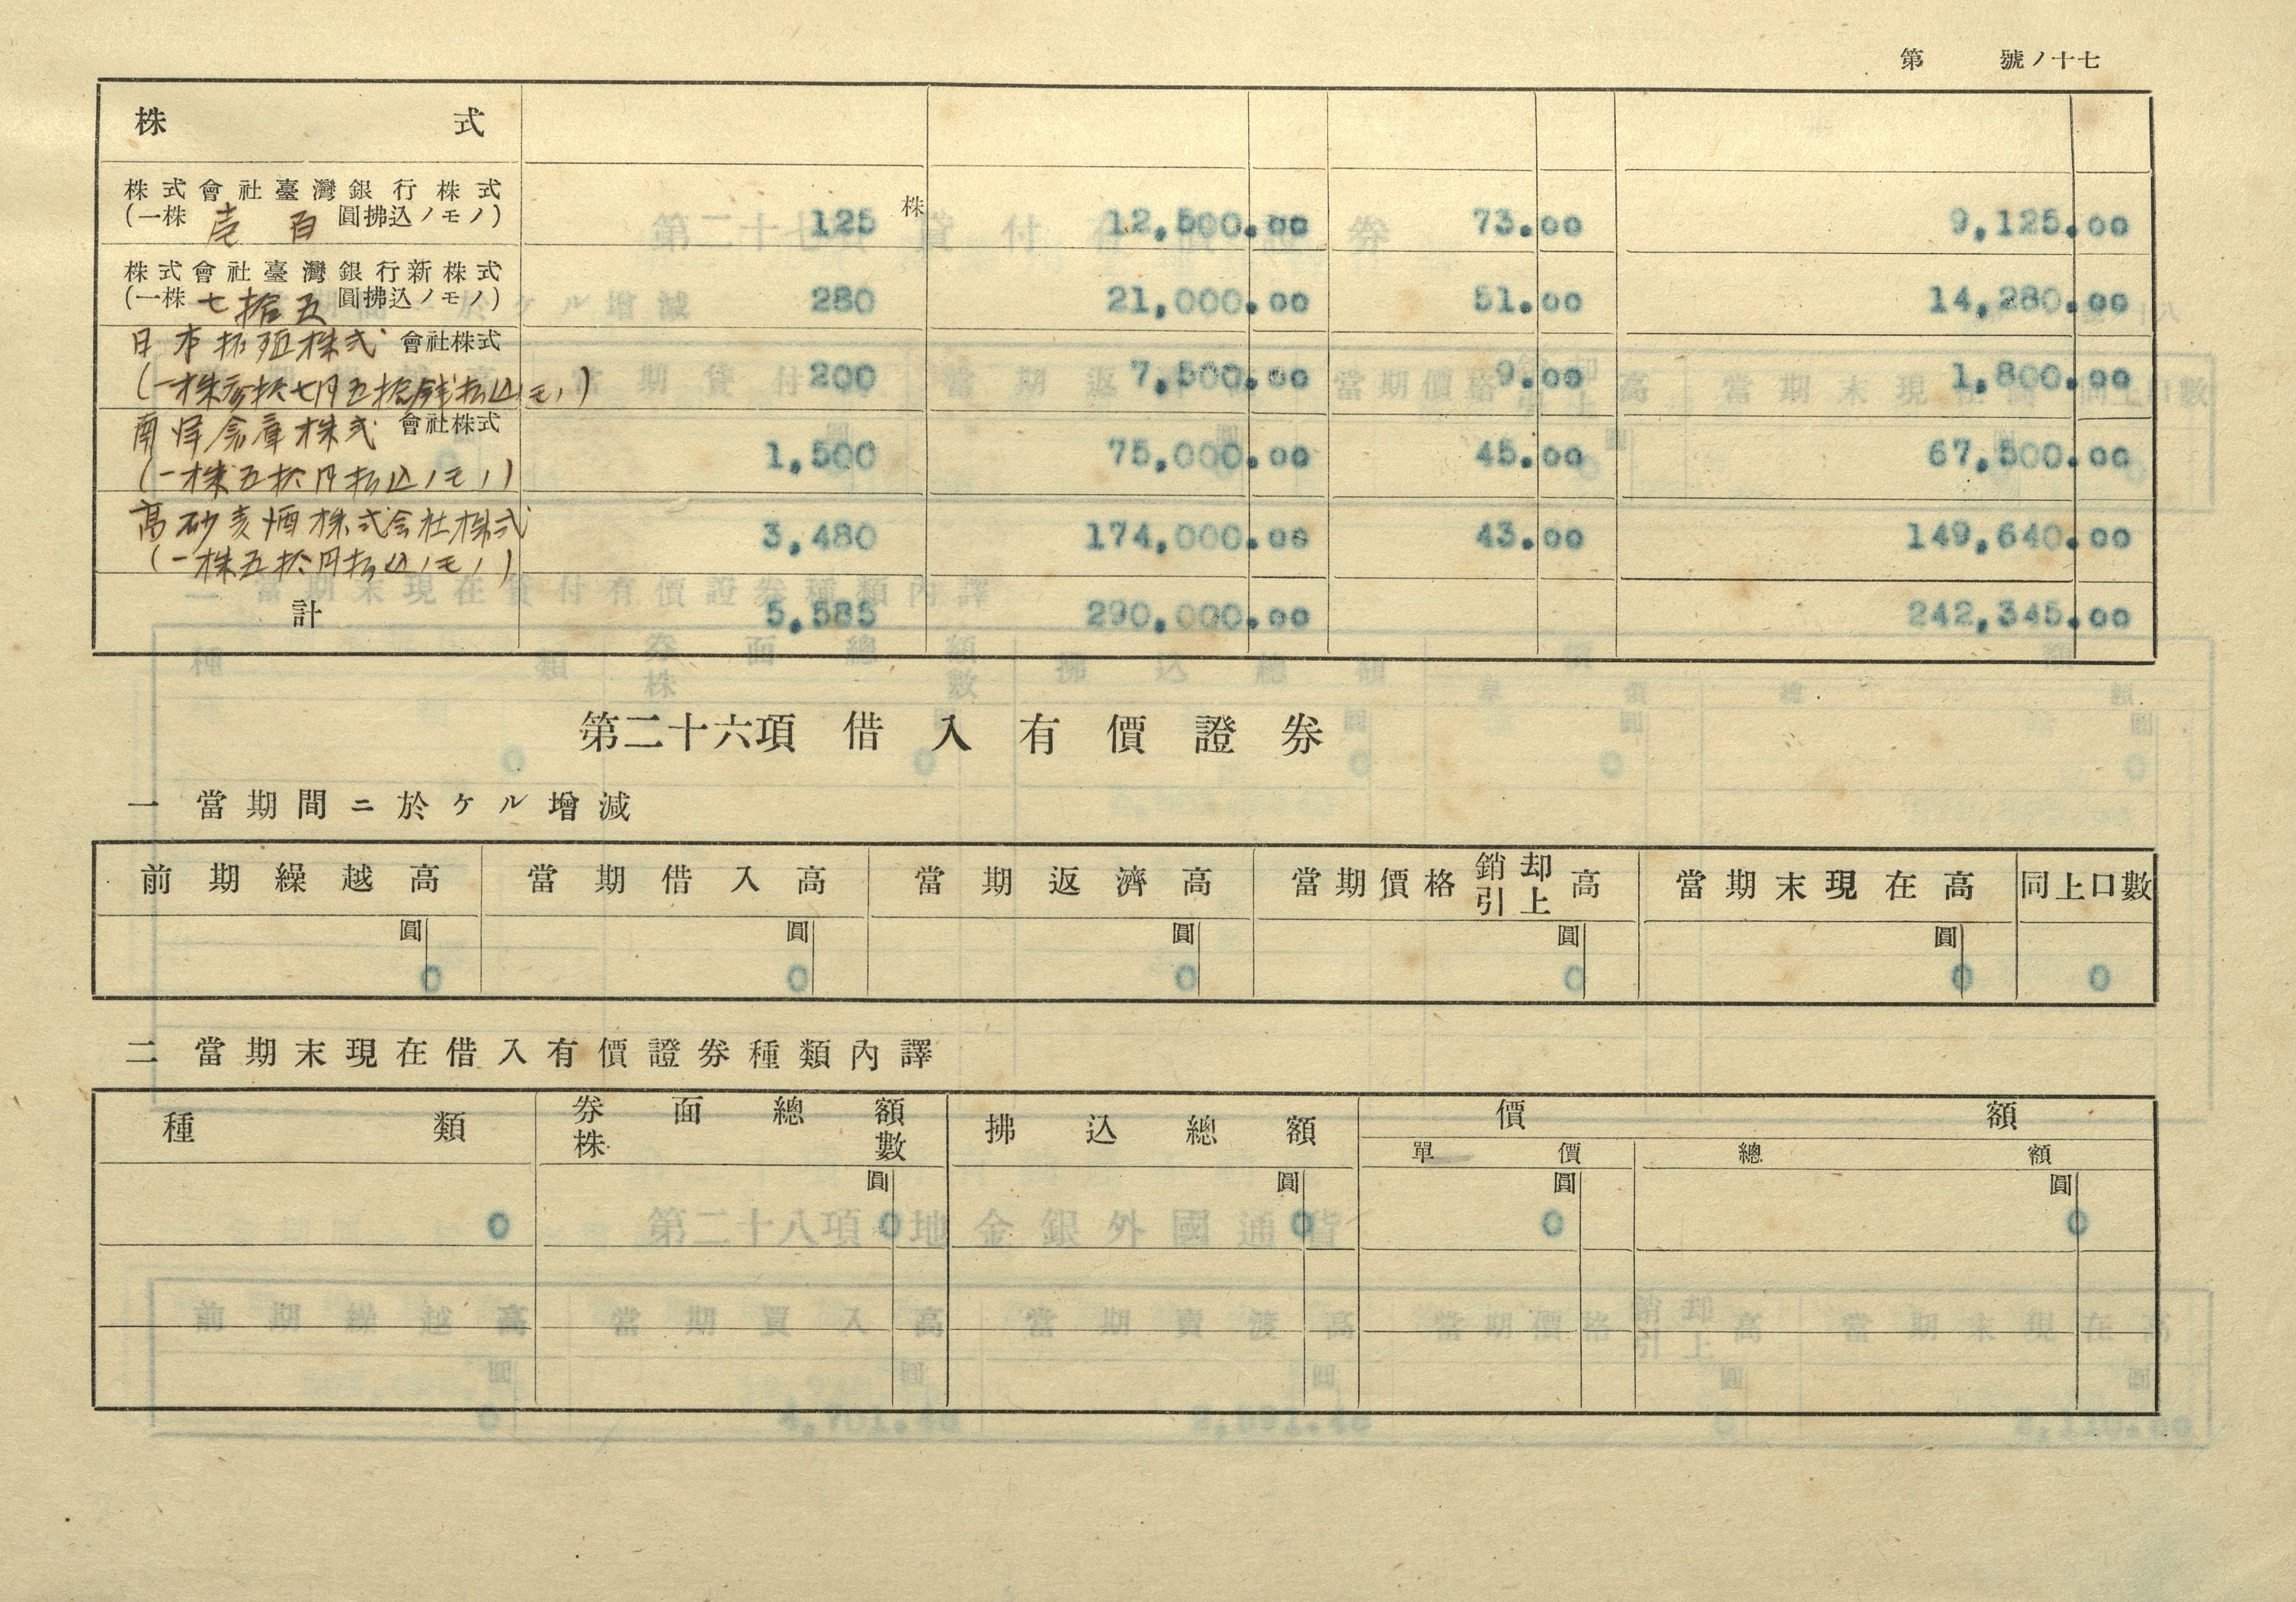 第 號ノ十七
株式
株式會社臺灣銀行株式 125株 12,500.00 73.00 9,125.00
(一株 壱百 圓拂込ノモノ)
株式會社臺灣銀行新株式 280 21,000.00 51.00 14,280.00
(一株 七拾五 圓拂込ノモノ)
日本拓殖株式會社株式 200 7,500.00 9.00 1,800.00
(一株参拾七円五拾銭払込ノモノ)
南洋倉庫株式會社株式 1,500 75,000.00 45.00 67,500.00
(一株五拾円払込ノモノ)
高砂麦酒株式会社株式 3,480 174,000.00 43.00 149,640.00
(一株五拾円払込ノモノ)
計 5,585 290,000.00 242,345.00
第二十六項 借入有價證券
一 當期間ニ於ケル增減
前期繰越高 當期借入高 當期返濟高 當期價格銷却引上高 當期末現在高 同上口數
圓 圓 圓 圓 圓
0 0 0 0 0 0
二 當期末現在借入有價證券種類內譯
種類 券面總額 拂込總額 價額
株數
單價 總額
圓 圓 圓 圓
0 0 0 0 0